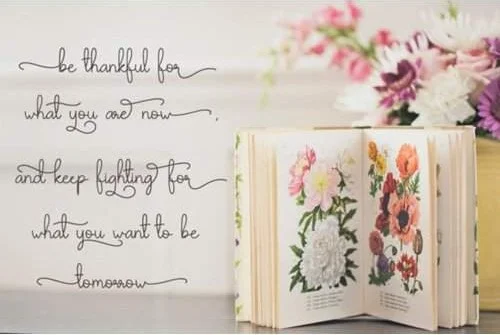 be thankful for
what you are now,
and keep fighting for
what you want to be
tomorrow